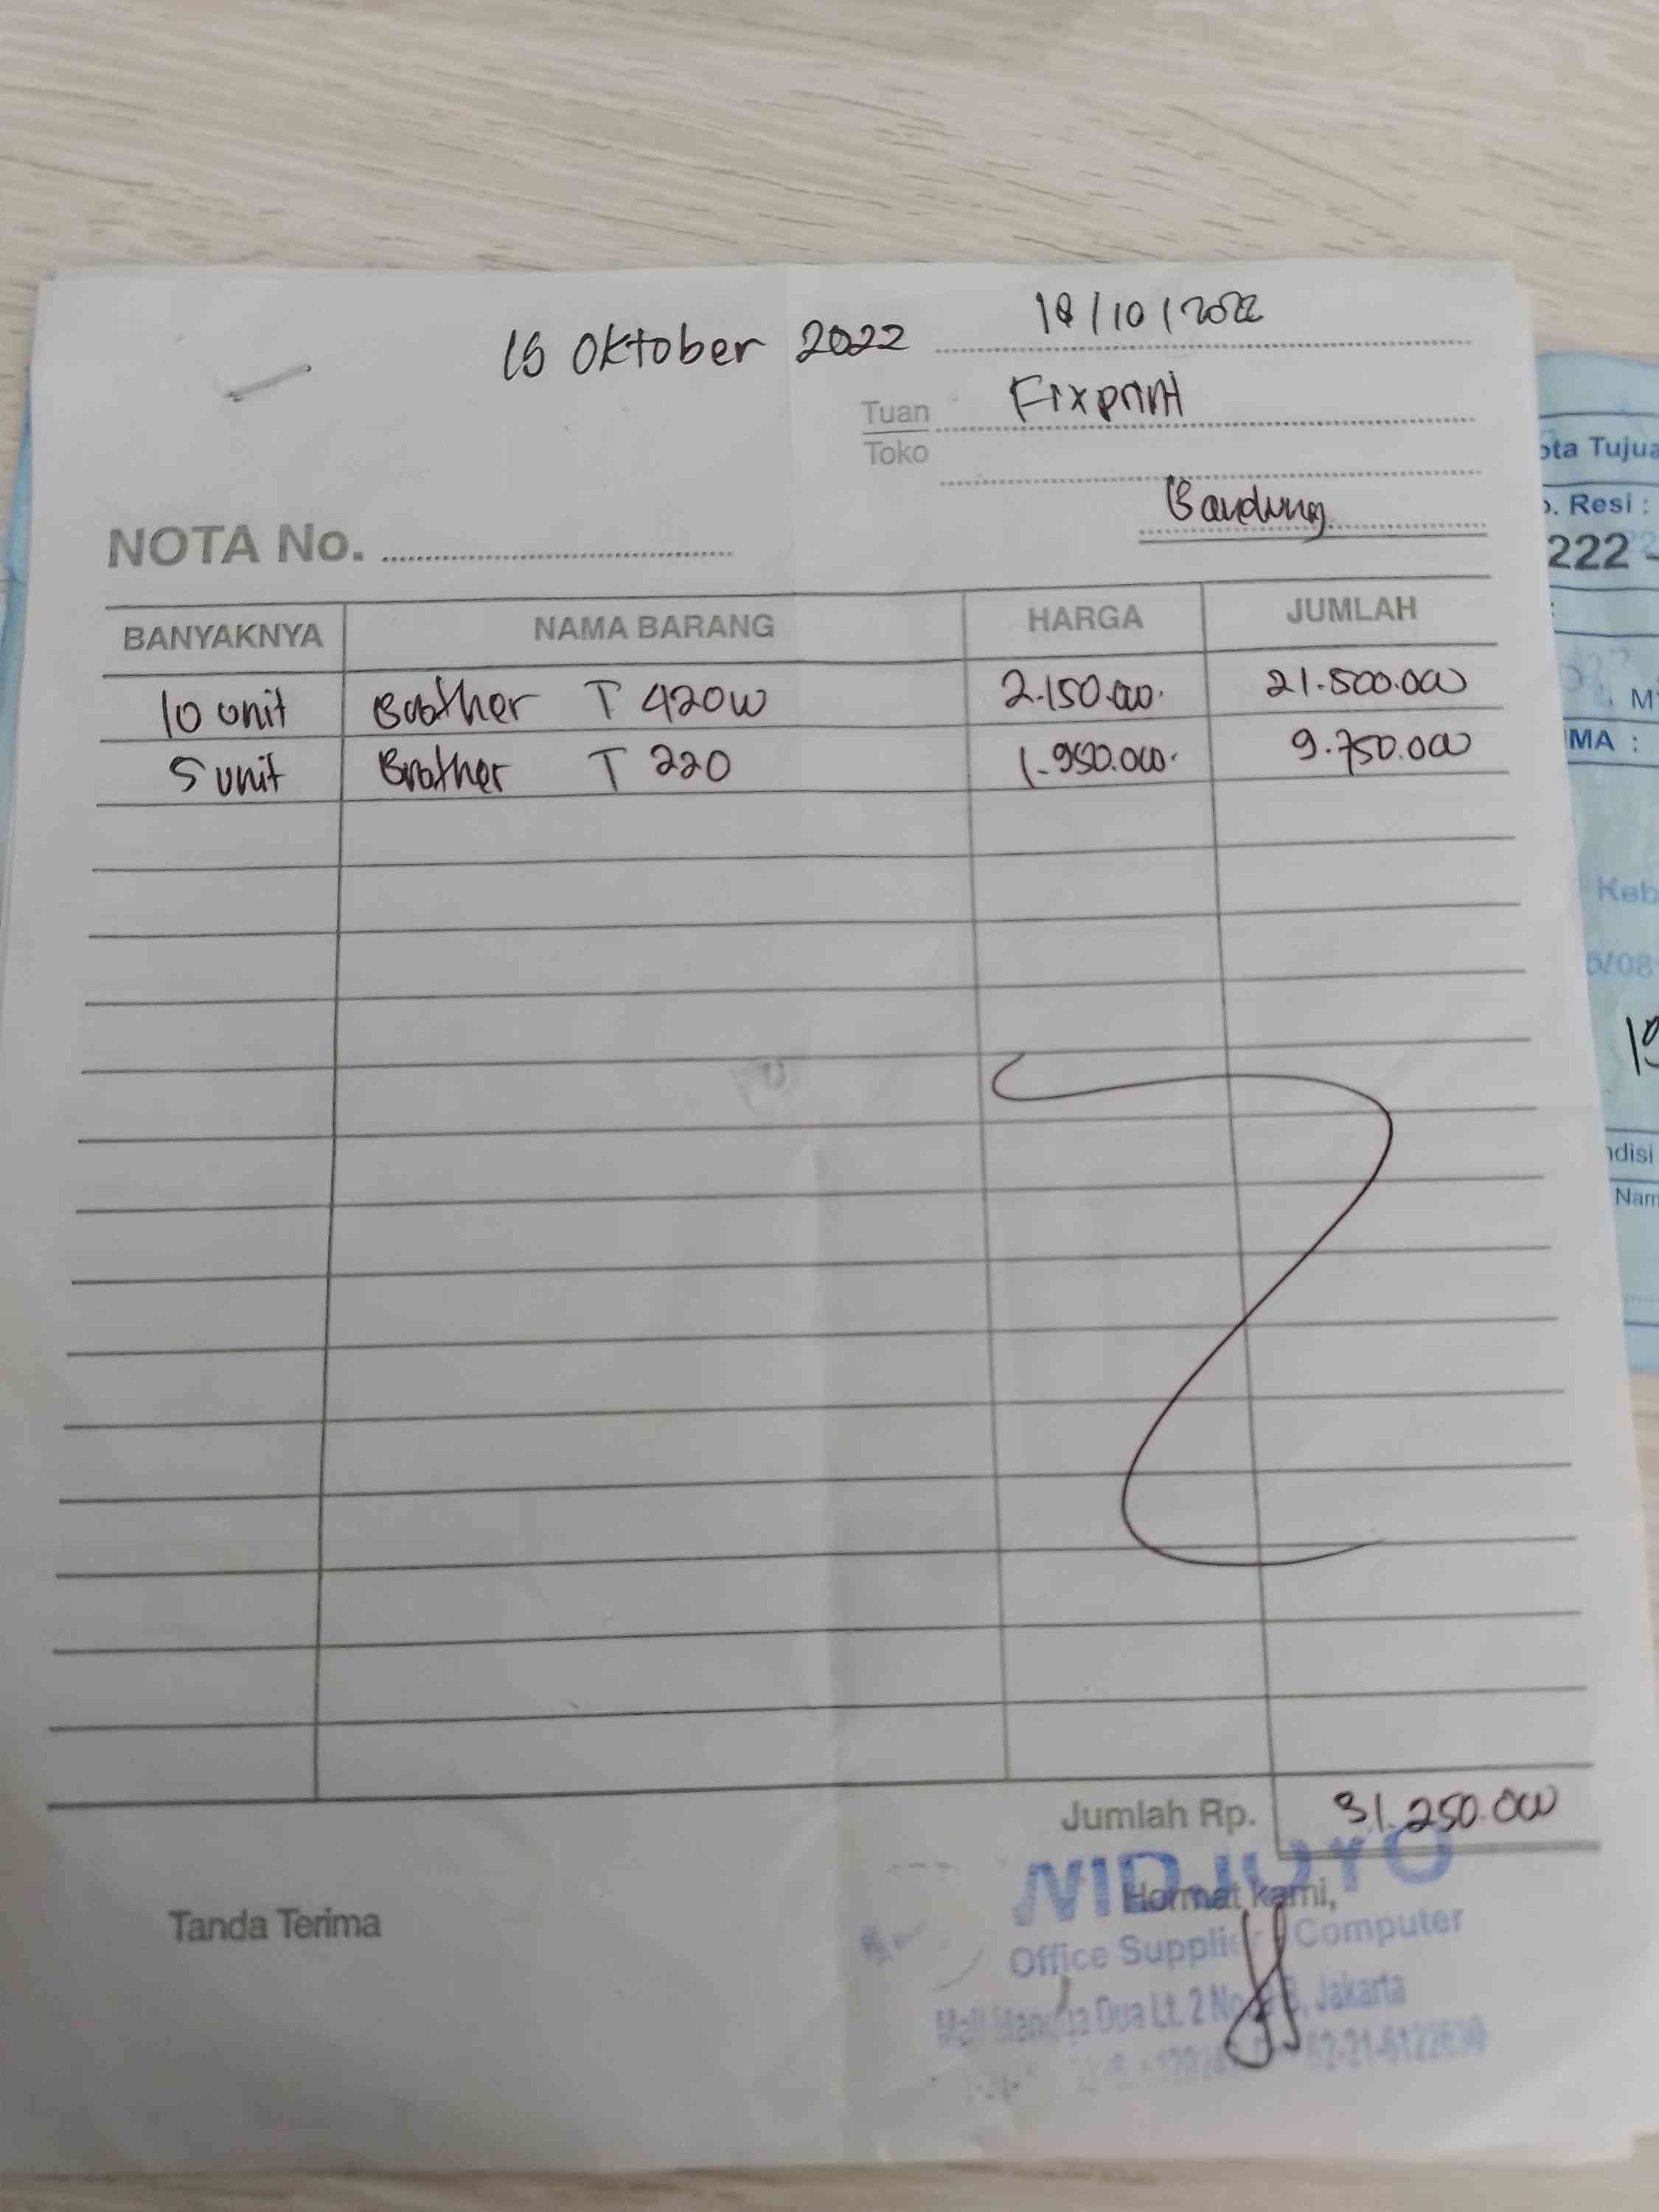 15 Oktober 2022
18/10/2022
Tuan Fixprint
Toko
Bandung
NOTA No.
BANYAKNYA NAMA BARANG HARGA JUMLAH
10 unit Brother T 420W 2.150.000. 21.500.000
5 unit Brother T 220 1.950.000. 9.750.000
Jumlah Rp. 31.250.000
Tanda Terima
Hormat kami,
NIDJOYO
Office Supplies Computer
Mall Mangga Dua Lt. 2 No. Jakarta
62-21-6122630
ota Tujua
o. Resi :
222 -
MA :
Keb
ndisi
Nam